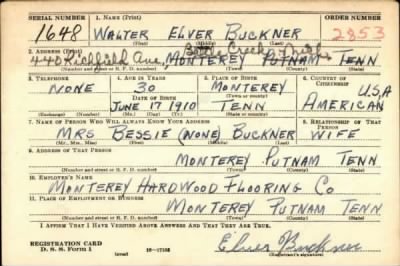 SERIAL NUMBER 1. NAME (Print) ORDER NUMBER
1648 WALTER ELVER BUCKNER 2853
(First) (Middle) (Last)
2. ADDRESS (Print) Battle Creek, Mich.
440 Richfield Ave. MONTEREY PUTNAM TENN
(Number and street or R. F. D. number) (Town) (County) (State)
3. TELEPHONE 4. AGE IN YEARS 5. PLACE OF BIRTH 6. COUNTRY OF CITIZENSHIP
NONE 30 MONTEREY U.S.A
DATE OF BIRTH (Town or county)
JUNE 17 1910 TENN AMERICAN
(Exchange) (Number) (Mo.) (Day) (Yr.) (State or country)
7. NAME OF PERSON WHO WILL ALWAYS KNOW YOUR ADDRESS 8. RELATIONSHIP OF THAT PERSON
MRS BESSIE (NONE) BUCKNER WIFE
(Mr., Mrs., Miss) (First) (Middle) (Last)
9. ADDRESS OF THAT PERSON
MONTEREY PUTNAM TENN
(Number and street or R. F. D. number) (Town) (County) (State)
10. EMPLOYER'S NAME
MONTEREY HARDWOOD FLOORING CO
11. PLACE OF EMPLOYMENT OR BUSINESS
MONTEREY PUTNAM TENN
(Number and street or R. F. D. number) (Town) (County) (State)
I AFFIRM THAT I HAVE VERIFIED ABOVE ANSWERS AND THAT THEY ARE TRUE.
REGISTRATION CARD
D. S. S. Form 1 (over) Elver Buckner
(Registrant's signature)